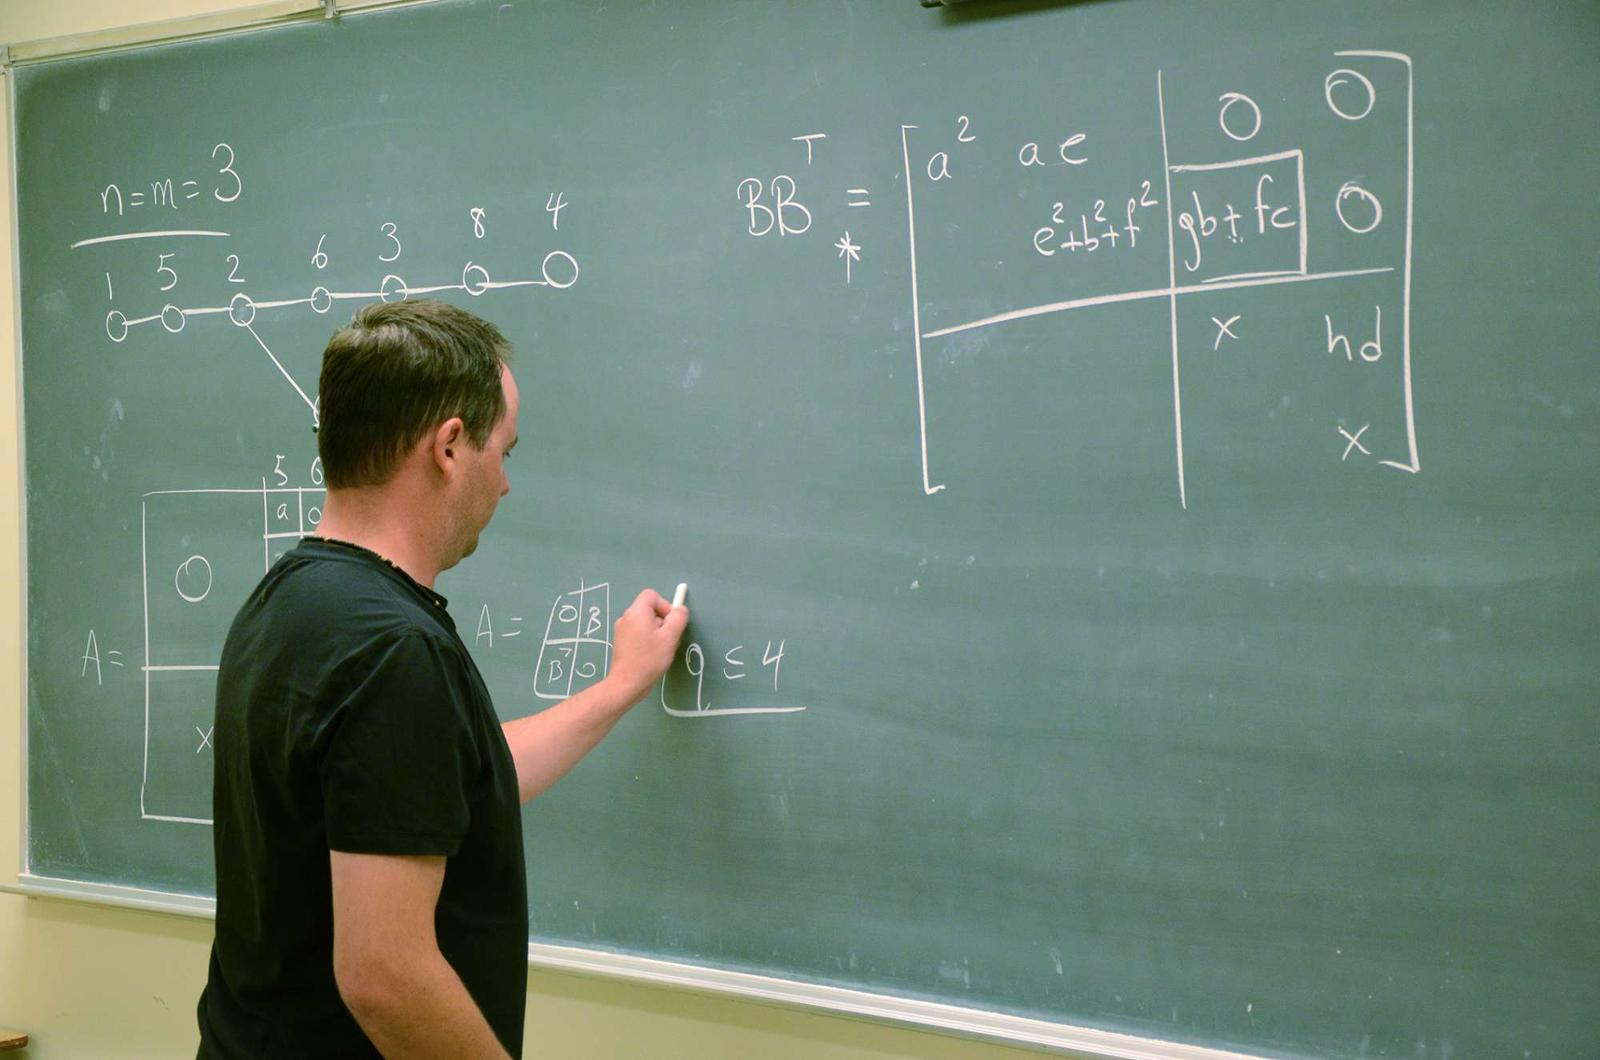 n=m=3
1 5 2 6 3 8 4
5 6
a 0
0
A=
x
A = 0 B
Bᵀ 0
q ≤ 4
BBᵀ =
*
a² ae 0 0
e²+b²+f² gb+fc 0
x hd
x